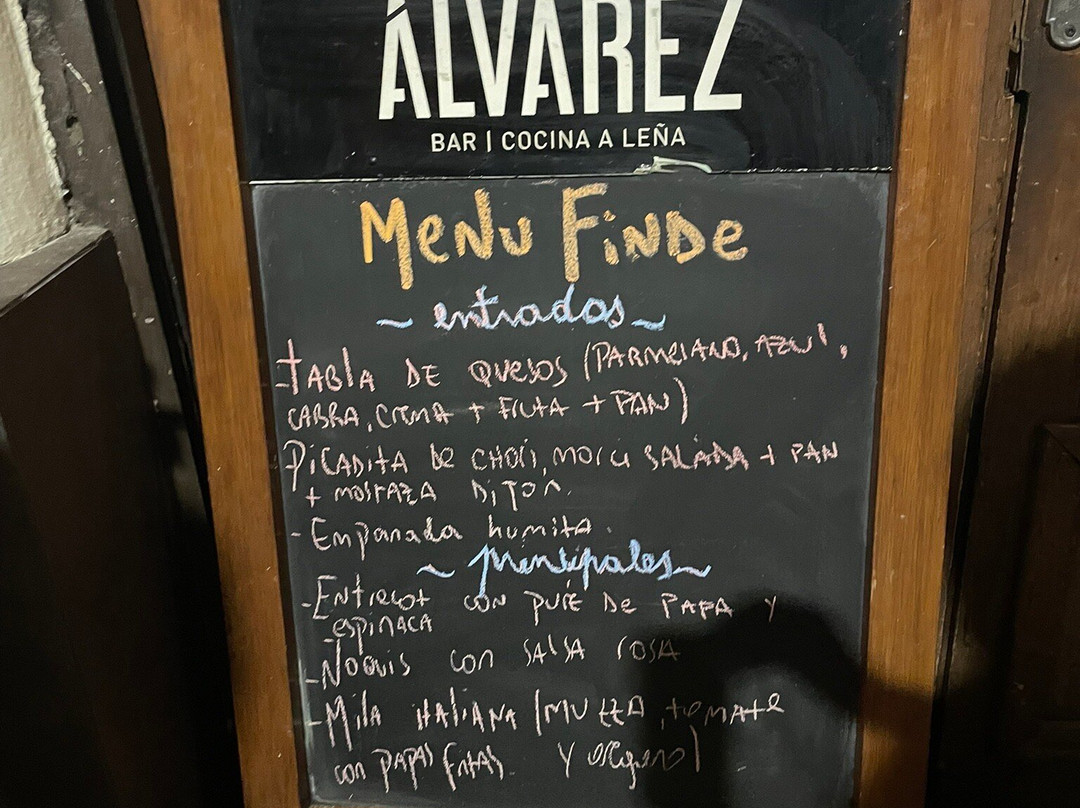 ÁLVAREZ
BAR | COCINA A LEÑA
MENU FINDE
~ entradas ~
- TABLA DE QUESOS (PARMESANO, AZUL,
CABRA, CREMA + FRUTA + PAN)
PICADITA DE CHORI, MORCI SALADA + PAN
+ MOSTAZA DIJON.
- Empanada humita.
~ principales ~
- ENTRECOT CON PURE DE PAPA Y
ESPINACA
- ÑOQUIS CON SALSA ROSA
- MILA ITALIANA (MUZZA, TOMATE
CON PAPAS FRITAS. Y OREGANO)